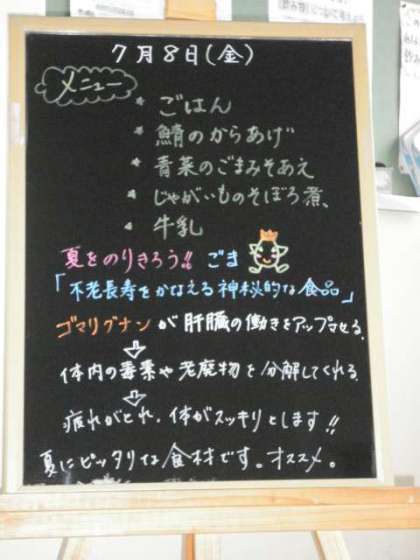 7月8日(金)
メニュー
* ごはん
* 鯖のからあげ
* 青菜のごまみそあえ
* じゃがいものそぼろ煮、
* 牛乳
夏をのりきろう!! ごま
「不老長寿をかなえる神秘的な食品」
ゴマリグナンが肝臓の働きをアップさせる。
⇩
体内の毒素や老廃物を分解してくれる。
⇩
疲れがとれ、体がスッキリとします!!
夏にピッタリな食材です。オススメ。